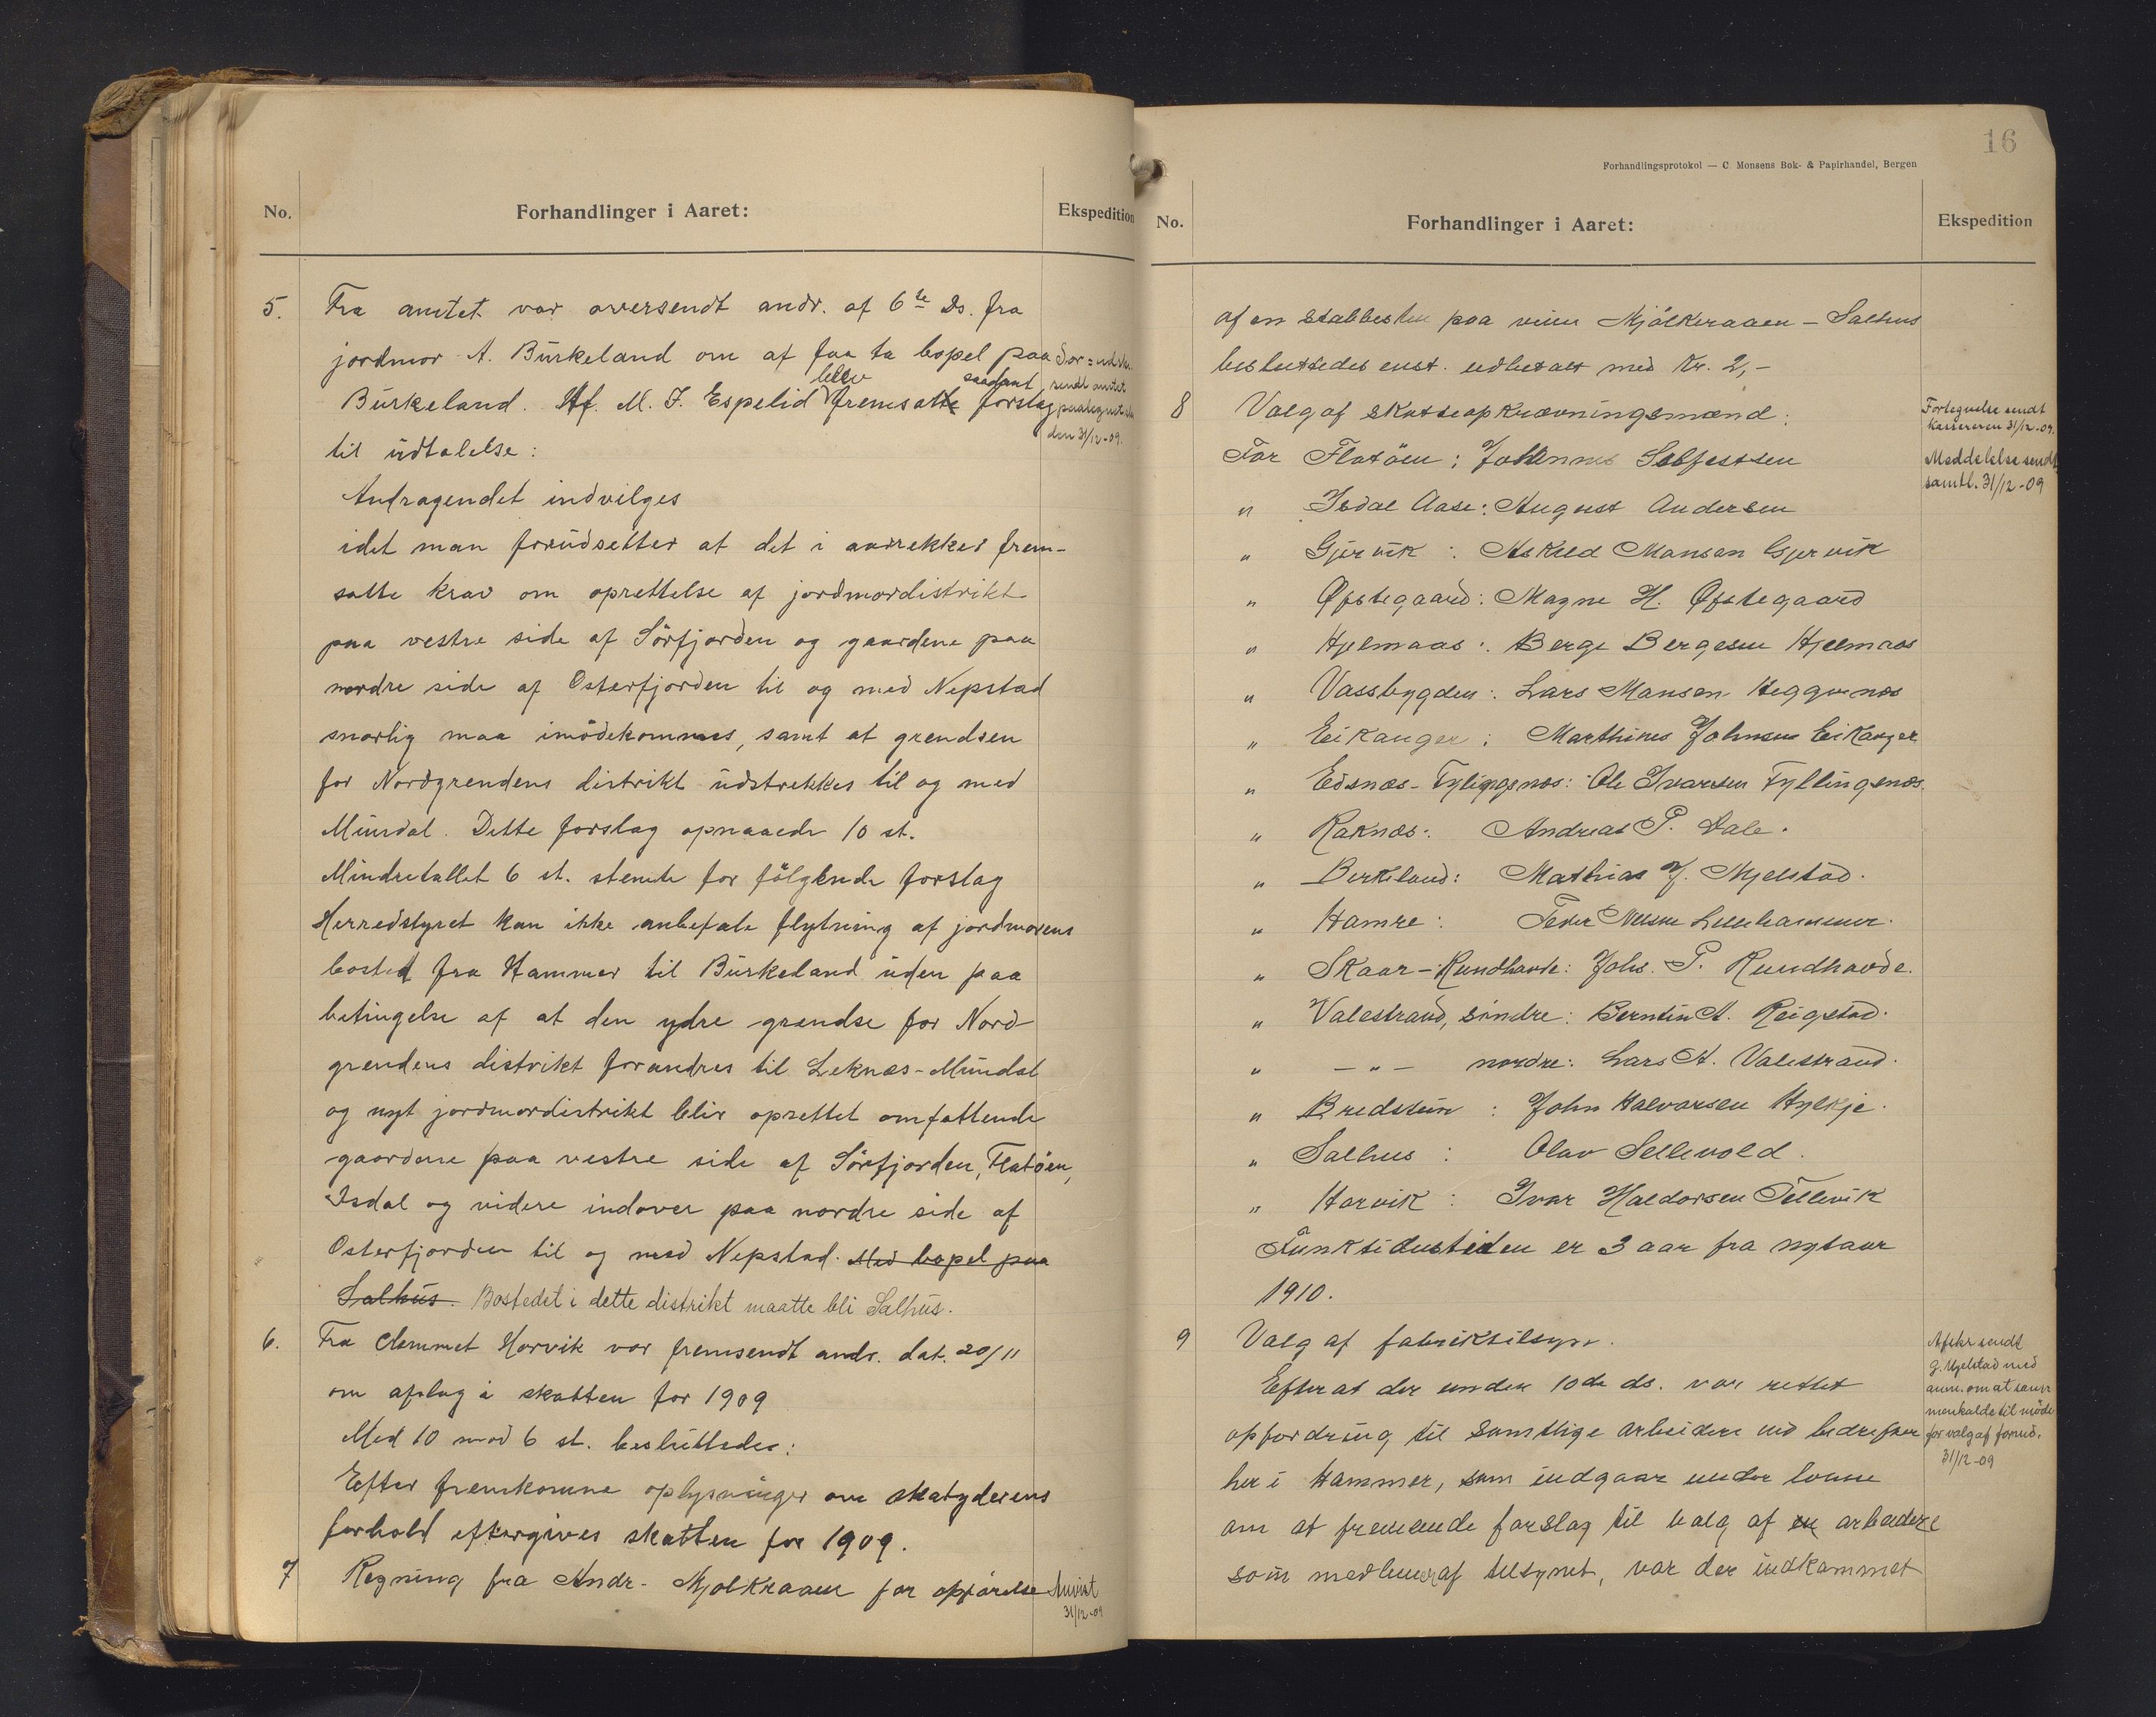 No.
Forhandlinger i Aaret:
Ekspedition
5. Fra amtet var oversendt andr. af 6te Ds. fra
jordmor A. Bürkeland om at faa ta bopel paa
Bürkeland. Af M. J. Espelid blev fremsatte saadant forslag
til üdtalelse:
Andragendet indvilges
idet man forüdsetter at det i aarrekker frem-
satte krav om oprettelse af jordmordistrikt
paa vestre side af Sörfjorden og gaardene paa
nordre side af Osterfjorden til og med Nepstad
snarlig maa imödekommes, samt at grendsen
for Nordgrendens distrikt üdstrekkes til og med
Mündal. Dette forslag opnaaede 10 st.
Mindretallet 6 st. stemte for fölgende forslag
Herredstyret kan ikke anbefale flytning af jordmorens
bosted fra Hammer til Bürkeland üden paa
betingelse af at den ydre grendse for Nord-
grendens distrikt forandres til Leknæs-Mündal
og nyt jordmordistrikt blir oprettet omfattende
gaardene paa vestre side af Sörfjorden, Flatöen,
Isdal og videre indover paa nordre side af
Osterfjorden til og med Nepstad. Med bopel paa
Salhüs. Bostedet i dette distrikt maatte bli Salhüs.
sendt amtet
den 31/12-09.
6. Fra Clemmet Horvik var fremsendt andr. dat. 20/11
om afslag i skatten for 1909
Med 10 mod 6 st. beslüttedes:
Efter fremkomne oplysninger om skatyderens
forhold eftergives skatten for 1909.
7 Regning fra Andr. Mjolkraaen for opförelse
Anvist
31/12-09
16
Forhandlingsprotokol — C. Monsens Bok- & Papirhandel, Bergen
No.
Forhandlinger i Aaret:
Ekspedition
af en stabbesten paa veien Mjölkeraaen - Salhus
besluttedes enst. udbetalt med Kr. 2,-
8 Valg af skatteopkrævningsmænd:
For Flatöen: Johannes Solfestsen
" Isdal Aase: August Andersen
" Gjervik: Askild Mansen Gjervik
" Øfstegaard: Magne H. Øfstegaard
" Hjelmaas: Berge Bergesen Hjelmaas
" Vassbygden: Lars Mansen Heggernes
" Eikanger: Marthines Johnsen Eikanger
" Eidsnæs-Fylingsnæs: Ole Ivarsen Fyllingsnæs.
" Raknæs: Andreas P. Dale.
" Birkeland: Mathias J. Mjelstad.
" Hamre: Peder Nelsen Lillehammer.
" Skaar-Rundhovde: Johs. P. Rundhovde.
" Valestrand, söndre: Berntin A. Reigstad.
" — " — nordre: Lars A. Valestrand.
" Bredstün: John Halvorsen Hylkje.
" Salhus: Olav Sellevold.
" Horvik: Ivar Haldorsen Tellevik
Funktionstiden er 3 aar fra nytaar
1910.
Fortegnelse sendt
kassereren 31/12-09.
Meddelelse sendt
samtl. 31/12-09
9 Valg af fabriktilsyn.
Efterat der under 10de ds. var rettet
opfordring til samtlige arbeidere ved bedrifter
her i Hammer, som indgaar under loven
om at fremsende forslag til valg af en arbeidere
som medlemer af tilsynet, var der indkommet
Afskr. sendt
G. Mjelstad med
anm. om at sam-
menkalde til möde
for valg af formd.
31/12-09